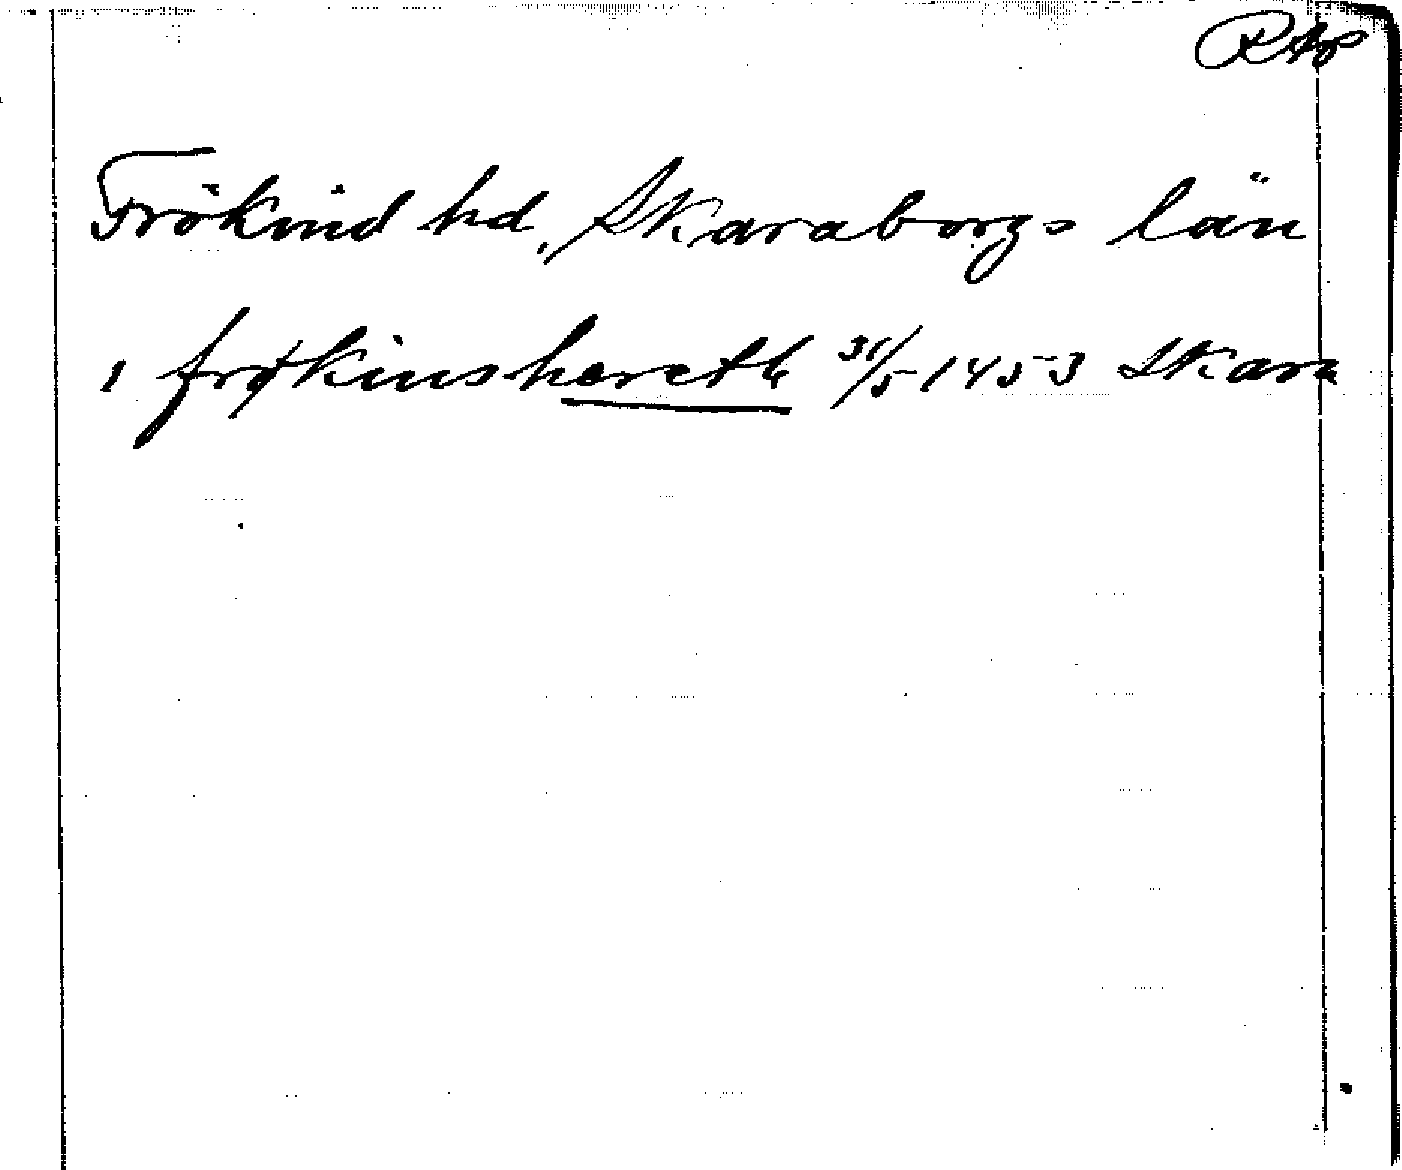 RAp
Frökind hd, Skaraborgs län
i frøkinshæreth 31/5 1453 Skara